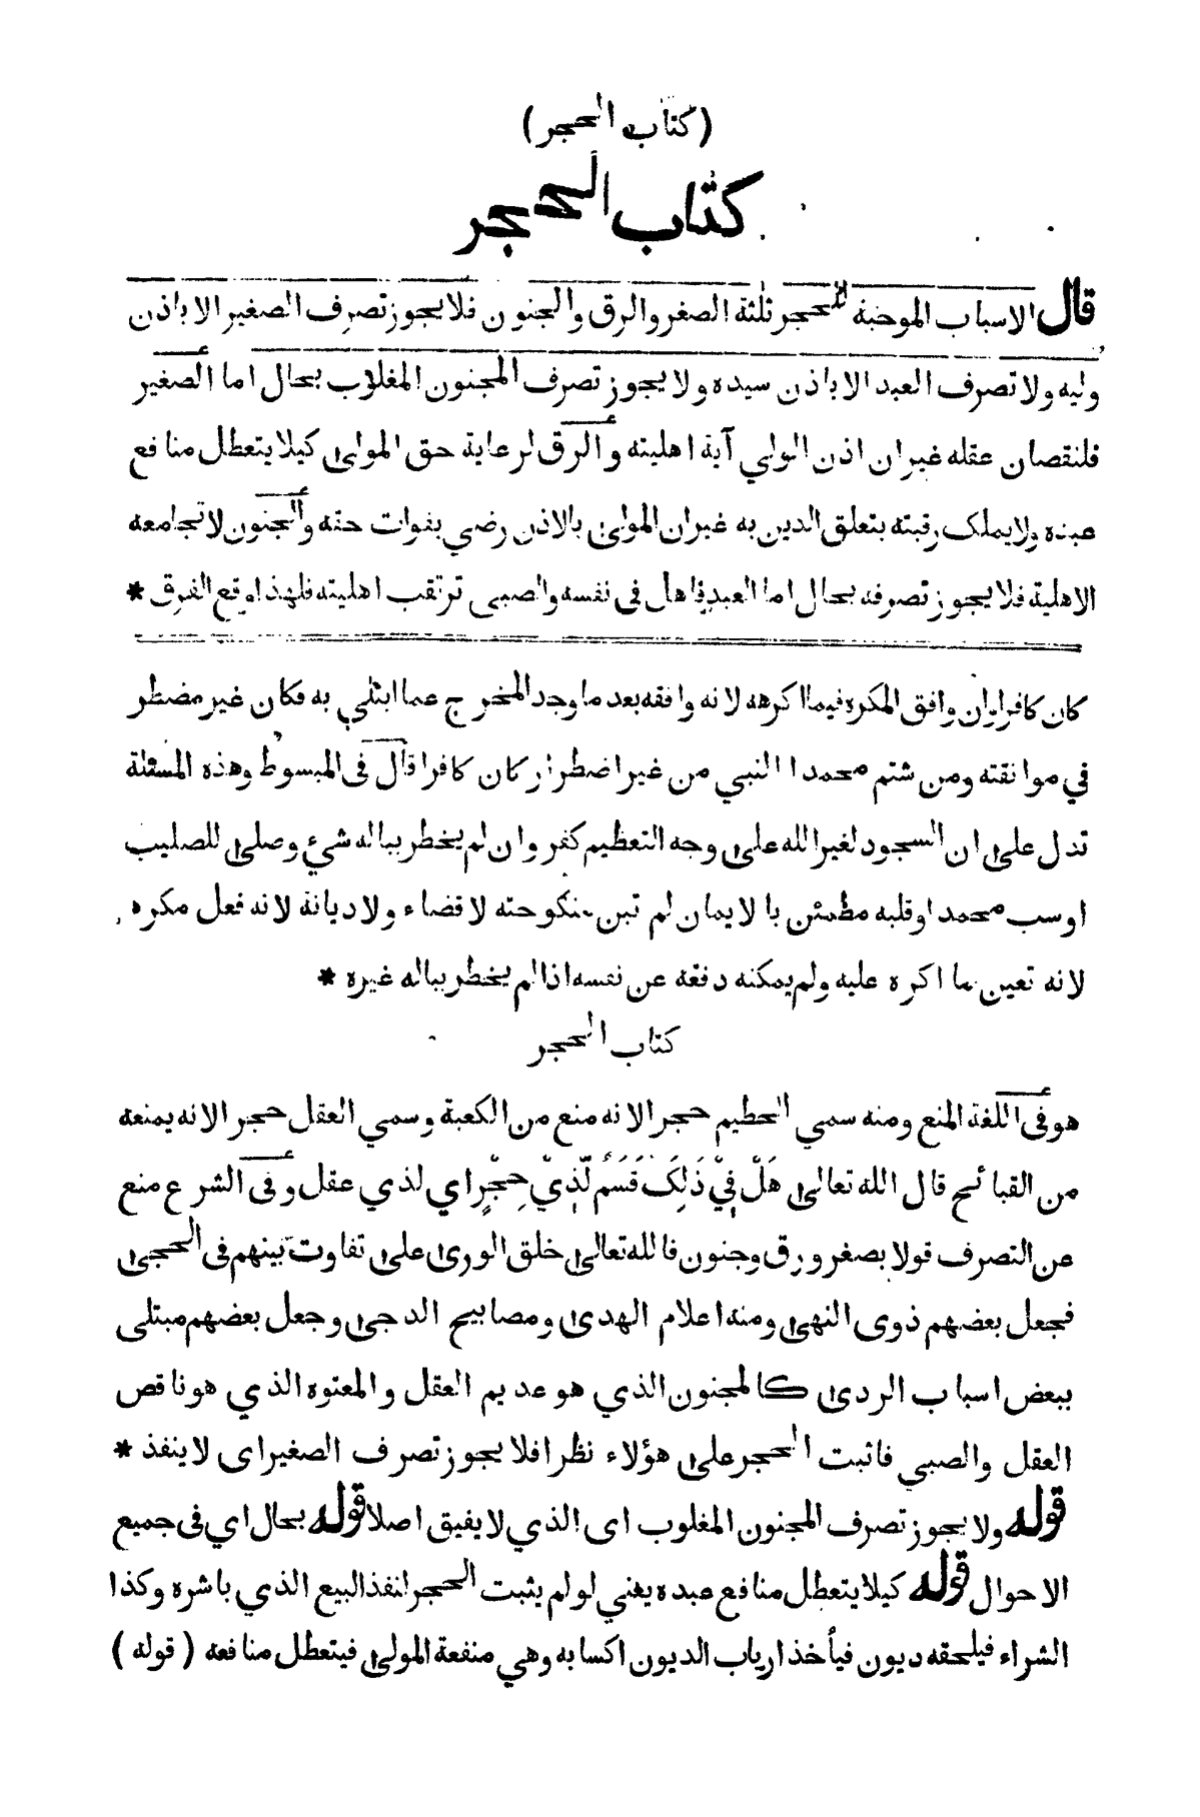 (كتاب الحجر)
كتاب الحجر
قال الاسباب الموجبة للحجر ثلثة الصغر والرق والجنون فلا يجوز تصرف الصغير الا باذن
وليه ولا تصرف العبد الا باذن سيده ولا يجوز تصرف المجنون المغلوب بحال اما الصغير
فلنقصان عقله غير ان اذن الولي آية اهليته والرق لرعاية حق المولى كيلا يتعطل منافع
عبده ولا يملك رقبته بتعلق الدين به غير ان المولى بالاذن رضي بفوات حقه والجنون لا تجامعه
الاهلية فلا يجوز تصرفه بحال اما العبد فاهل فى نفسه والصبى ترتقب اهليته فلهذا وقع الفرق *
كان كافرا وان وافق المكره فيما اكرهه لانه وافقه بعد ما وجد المخرج عما ابتلي به فكان غير مضطر
في موافقته ومن شتم محمدا النبي من غير اضطرار كان كافرا قال فى المبسوط وهذه المسئلة
تدل على ان السجود لغير الله على وجه التعظيم كفر وان لم يخطر بباله شئ وصلى للصليب
او سب محمدا وقلبه مطمئن بالايمان لم تبن منكوحته لا قضاء ولا ديانة لانه فعل مكره
لانه تعين ما اكره عليه ولم يمكنه دفعه عن نفسه اذا لم يخطر بباله غيره *
كتاب الحجر
هو فى اللغة المنع ومنه سمي الحطيم حجرا لانه منع من الكعبة وسمي العقل حجرا لانه يمنعه
من القبائح قال الله تعالى هَلْ فِيْ ذَلِكَ قَسَمٌ لِّذِيْ حِجْرٍ اي لذي عقل وفى الشرع منع
عن التصرف قولا بصغر ورق وجنون فالله تعالى خلق الورى على تفاوت بينهم فى الحجى
فجعل بعضهم ذوى النهى ومنه اعلام الهدى ومصابيح الدجى وجعل بعضهم مبتلى
ببعض اسباب الردى كالمجنون الذي هو عديم العقل والمعتوه الذي هو ناقص
العقل والصبي فاثبت الحجر على هؤلاء نظرا فلا يجوز تصرف الصغير اى لا ينفذ *
قوله ولا يجوز تصرف المجنون المغلوب اى الذي لا يفيق اصلا قوله بحال اي فى جميع
الاحوال قوله كيلا يتعطل منافع عبده يعني لو لم يثبت الحجر لنفذ البيع الذي باشره وكذا
الشراء فيلحقه ديون فيأخذ ارباب الديون اكسابه وهي منفعة المولى فيتعطل منافعه (قوله)